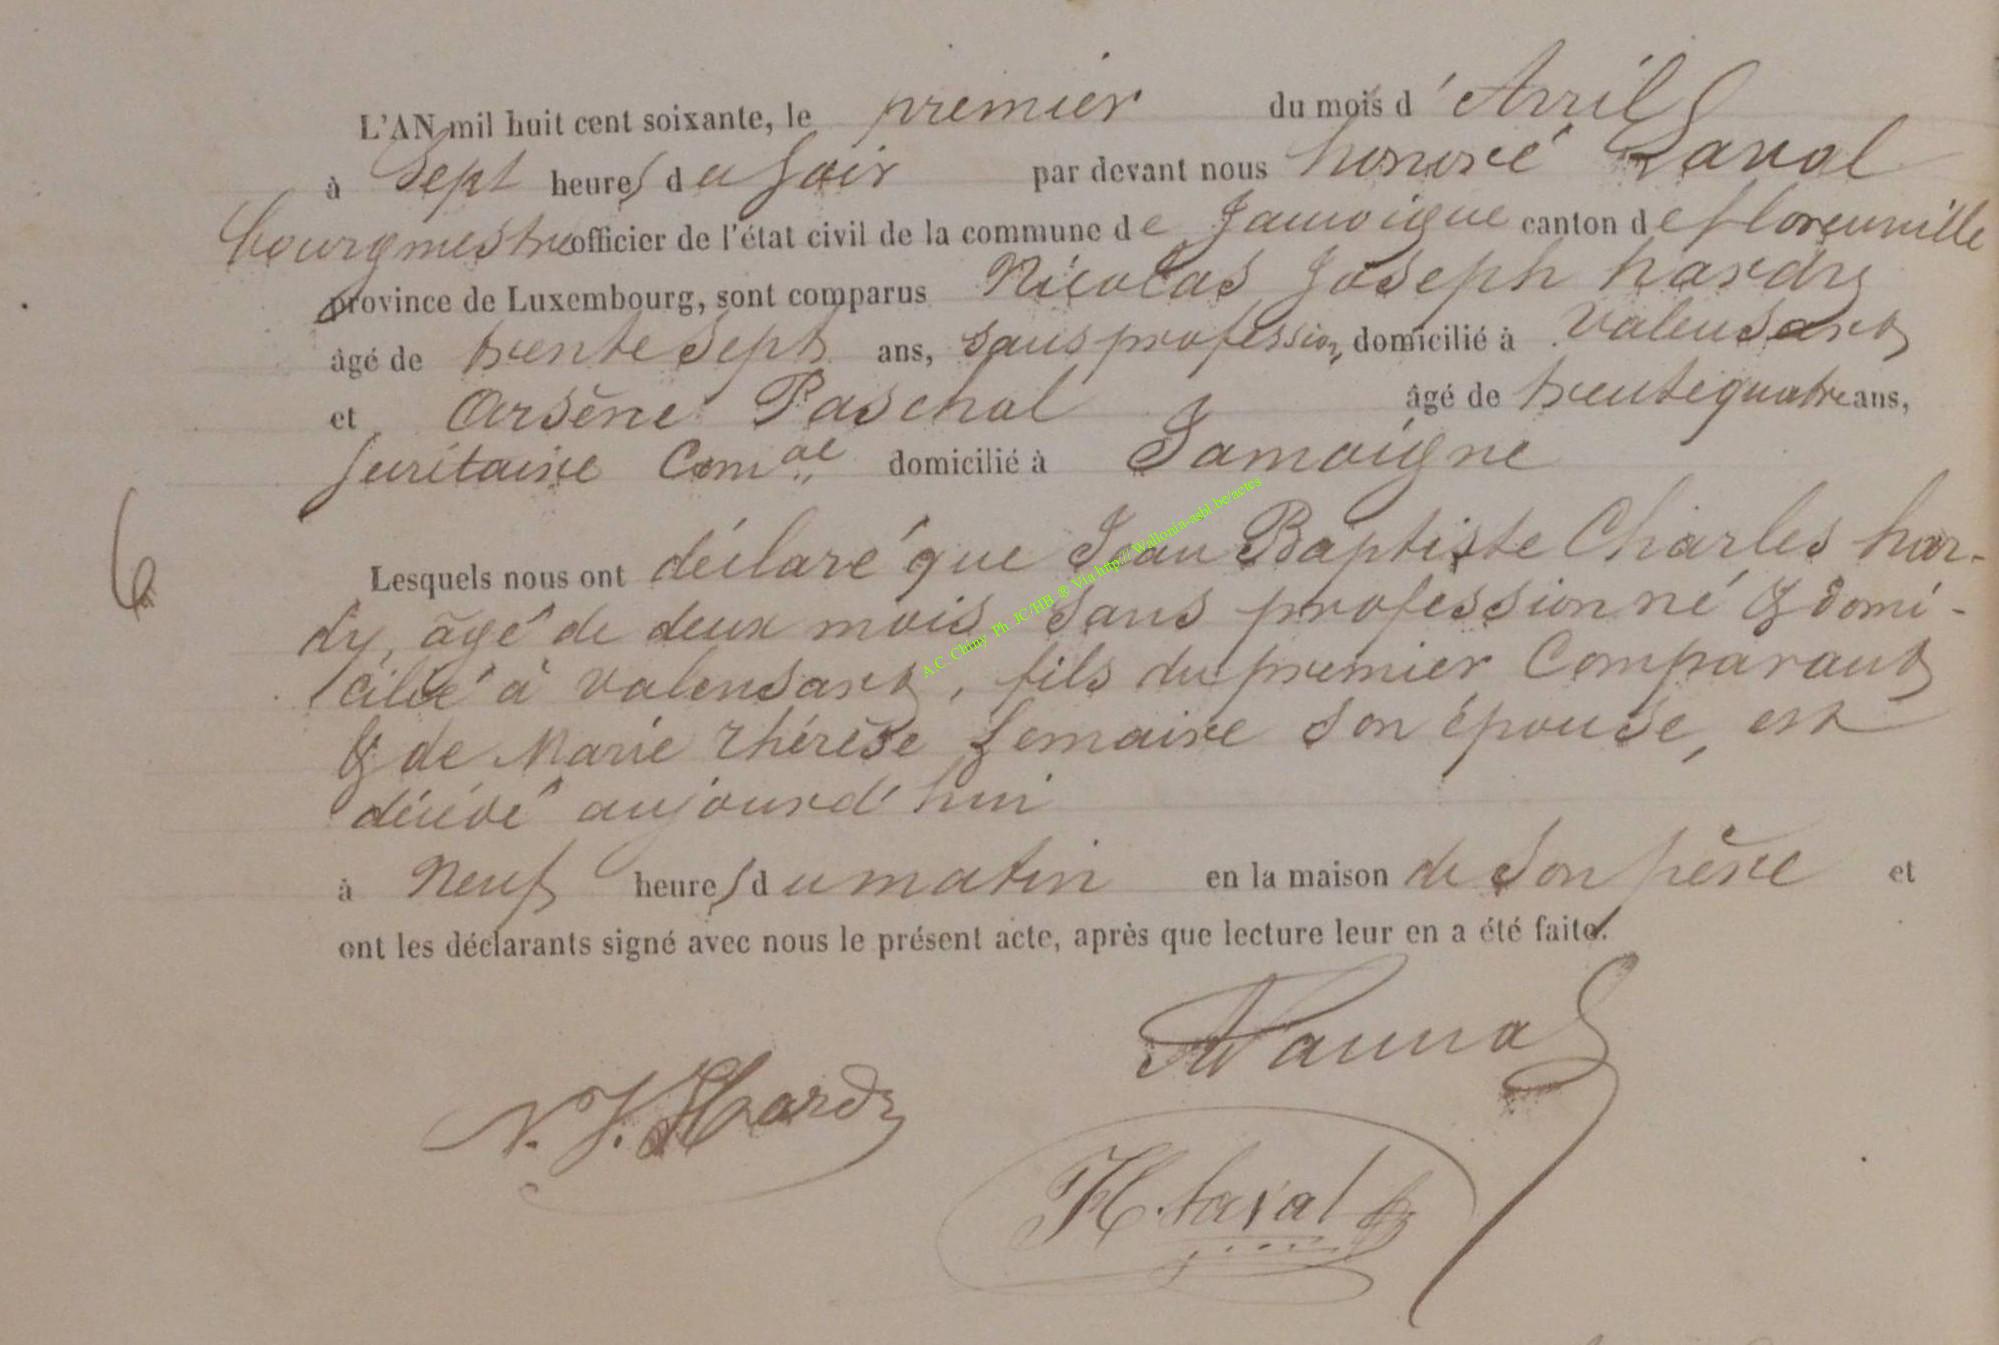 L'AN mil huit cent soixante, le premier du mois d'Avril
à Sept heures du soir par devant nous honoré Laval
bourgmestre officier de l'état civil de la commune de Jamoigne canton de florenville
province de Luxembourg, sont comparus Nicolas Joseph hardy
âgé de trente sept ans, sans profession, domicilié à Valensart
et Arsène Paschal âgé de trente quatre ans,
secrétaire Com.al domicilié à Jamoigne
6
Lesquels nous ont déclaré que Jean Baptiste Charles har-
dy, âgé de deux mois sans profession né & domi-
cilié à Valensart, fils du premier Comparant
& de Marie thérèse Lemaire son épouse, est
décédé aujourd'hui
à Neuf heures du matin en la maison de son père et
ont les déclarants signé avec nous le présent acte, après que lecture leur en a été faite.
N. J. Hardy
H. Laval
A.C. Chiny Ph JC/HB ® Via http:// Wallonia-asbl.be/actes